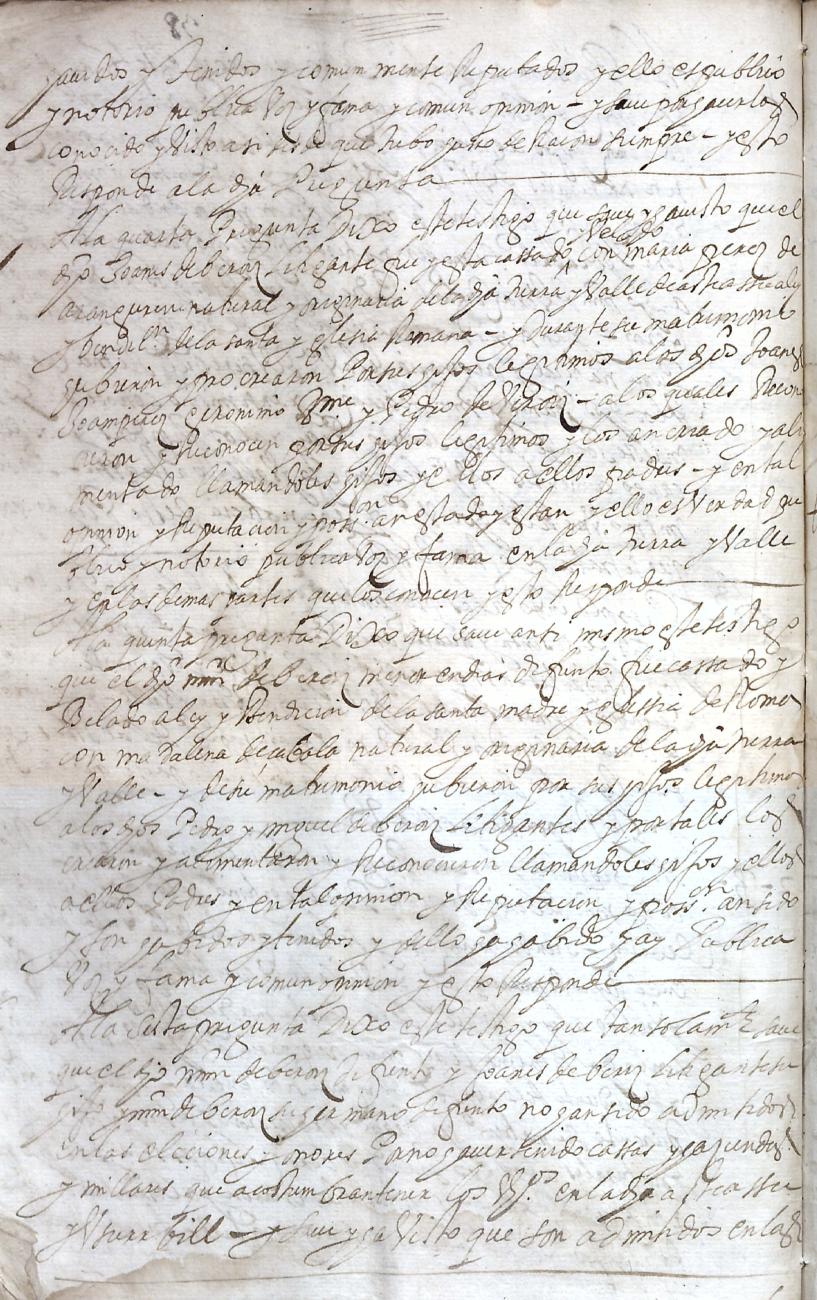 y tenidos y comun mente Reputados y ello es publico
y notorio publica voz y fama y comun opinion – y saue por auerlos
conocido y visto asi desde que tubo husso de Racon siempre – y esto
Responde a la dha Pregunta
A la quarta Pregunta Dixo este testigo que saue y a uisto que el
velado
dho Joanes de beroiz litigante fue y esta cassado con maria perez de
aranguren natural y originaria de la dha tierra y Valle de
y bendiçn de la santa yglesia Romana – y Durante su matrimonio
hubieron y procrearon Por sus hijos legitimos a los dhos Joanes
geronimo y Pedro de Veroiz – a los quales Recono
cieron y Reconocen por sus hijos legitimos y los an criado y ali
mentado llamandoles hijos y ellos a ellos padres – y en tal
opinion y Reputacion y posson an estado y estan y ello es Verdad pu
blico y notorio publica Voz y fama en la dha tierra y Valle
y en las demas partes que los conocen y esto Responde
A la quinta pregunta Dixo que saue ansi mismo este testigo
que el dho mrn de beroiz menor en dias difunto fue cassado y
Belado a ley y Bendicion de la santa madre yglessia de Roma
con madalena de natural y originaria de la dha tierra
y Valle – y de su matrimonio hubieron por sus hijos legitimos
a los dhos Pedro y miguel de beroiz litigantes y por tales los
criaron y alimentaron y Reconocieron llamandoles hijos y ellos
a ellos Padres y en tal opinion y Reputacion y posson an sido
y son habidos y tenidos y dello ha habido y ay Publica
Voz y fama y comun opinion y esto Responde
A la sesta pregunta Dixo este testigo que tan solamte saue
que el dho mrn de beroiz difunto y Joanes de beroiz litigante su
hijo y mrn de beroiz su hermano difunto no han sido admitidos
en las elecciones y onores Por no hauer tenido cassas y haciendas
y millares que acostumbran tener los Vos en la dha
y Vsurbill – y saue y ha Visto que son admitidos en las